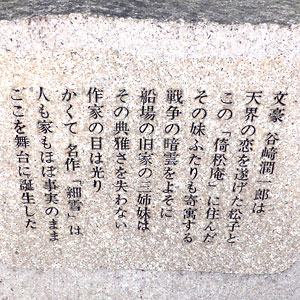 文豪 谷崎潤一郎は
天界の恋を遂げた松子と
この「倚松庵」に住んだ
その妹ふたりも寄寓する
戦争の暗雲をよそに
船場の旧家の三姉妹は
その典雅さを失わない
作家の目は光り
かくて 名作「細雪」は
人も家もほぼ事実のまま
ここを舞台に誕生した